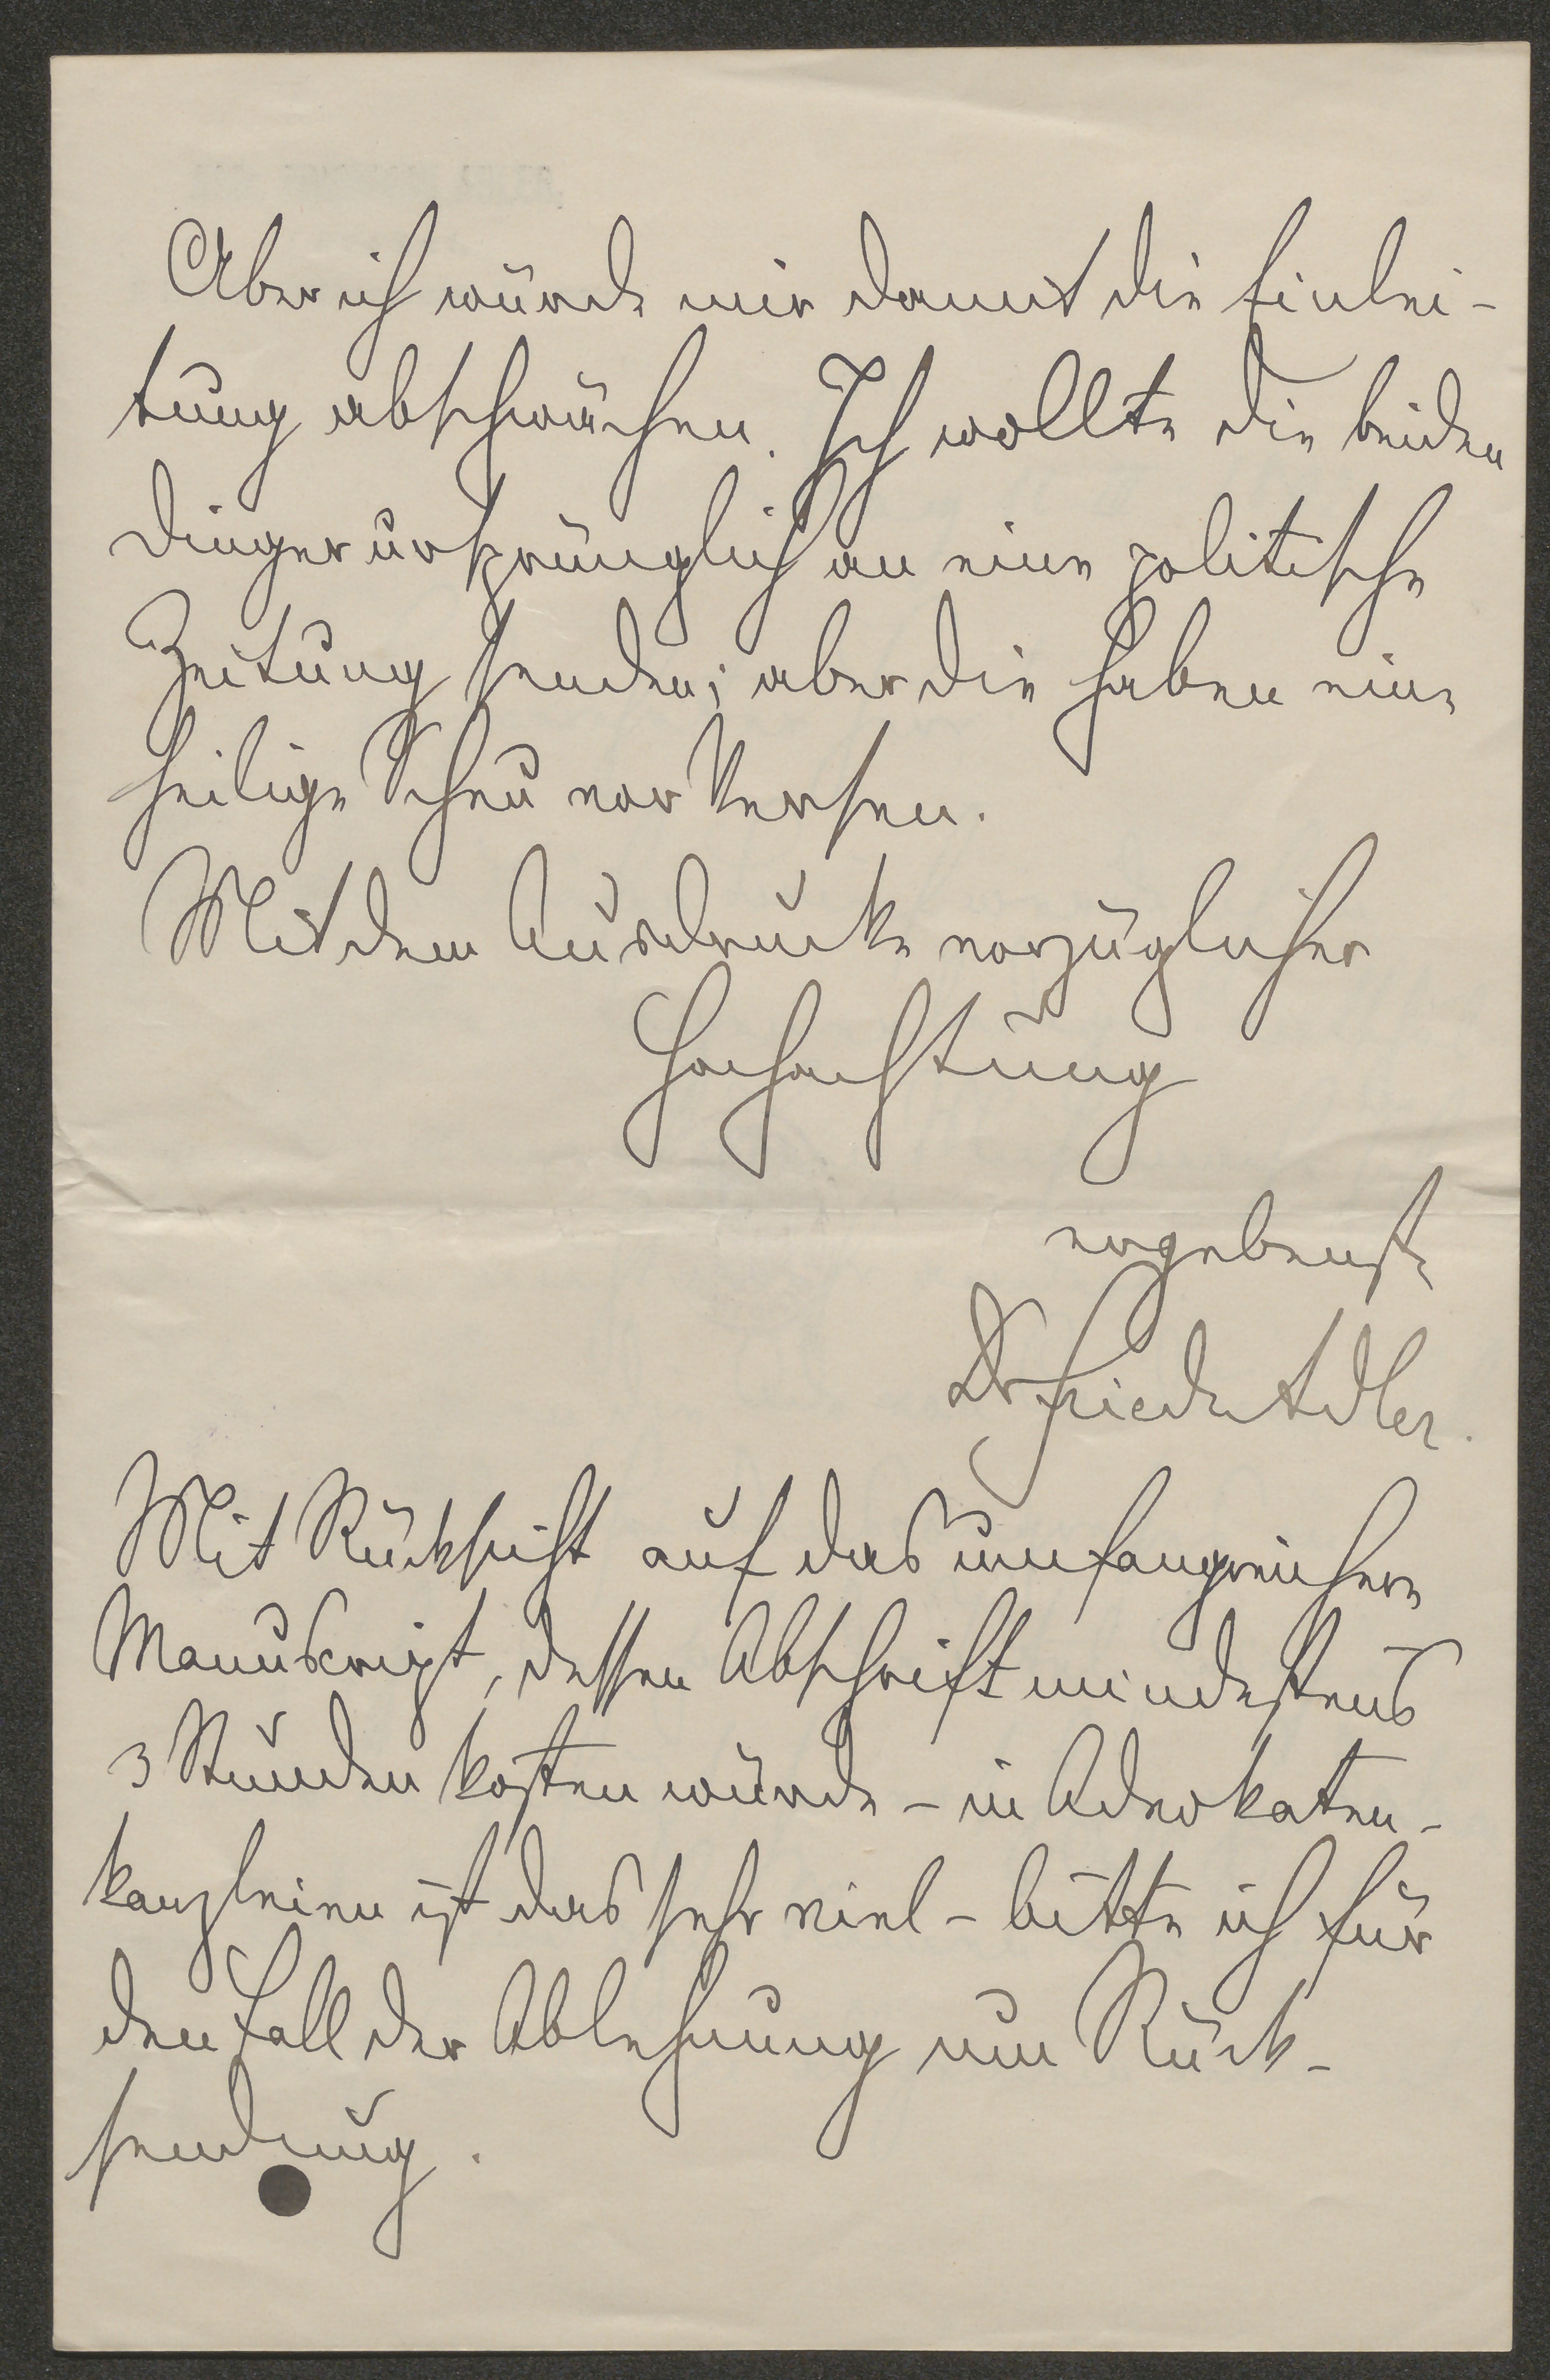 Aber ich würde mir damit die Einlei-
tung abschwächen. Ich wollte die beiden
Dinger ursprünglich an eine politische
Zeitung senden; aber die haben eine
heilige Scheu vor Versen.
Mit dem Ausdrucke vorzüglicher
Hochachtung
ergebenst
Dr Friedr Adler.
Mit Rücksicht auf das umfangreichere
Manuscript, dessen Abschrift mindestens
3 Stunden kosten würde – in Advokaten-
kanzleien ist das sehr viel – bitte ich für
den Fall der Ablehnung um Rück-
sendung.